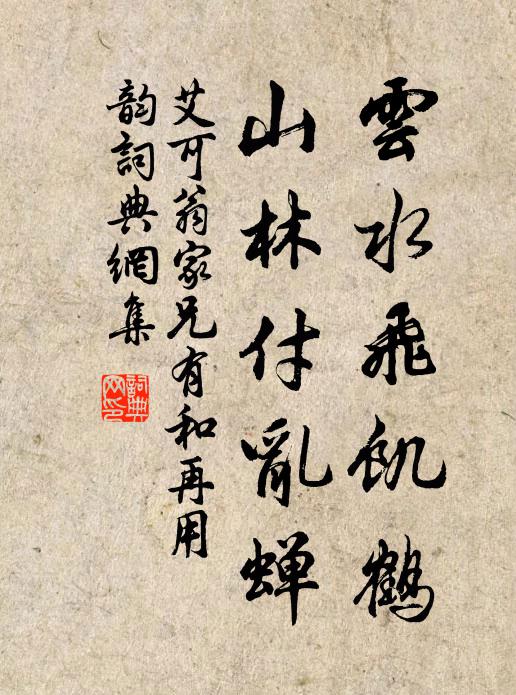 雲水飛飢鶴
山林付亂蟬
艾可翁家兄有和再用
韵詞典網集
詞典網印